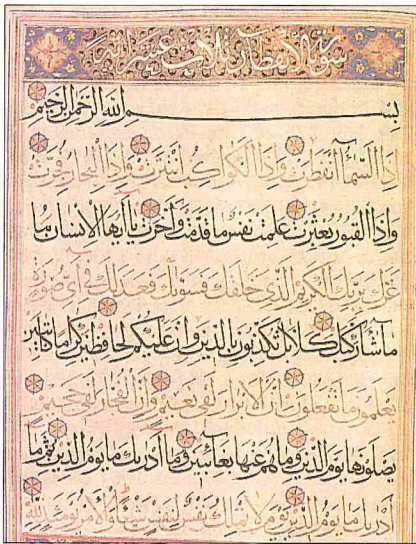 سورة الانفطار ثلاث عشر اية
بسم الله الرحمن الرحيم
اذا السماء انفطرت واذا الكواكب انتثرت واذا البحار فجرت
واذا القبور بعثرت علمت نفس ما قدمت واخرت يا ايها الانسان ما
غرك بربك الكريم الذي خلقك فسويك فعدلك في اي صورة
ما شاء ركبك كلا بل تكذبون بالدين وان عليكم لحافظين كراما كاتبين
يعلمون ما تفعلون ان الابرار لفي نعيم وان الفجار لفي جحيم
يصلونها يوم الدين وما هم عنها بغائبين وما ادريك ما يوم الدين ثم ما
ادريك ما يوم الدين يوم لا تملك نفس لنفس شيئا والامر يومئذ لله